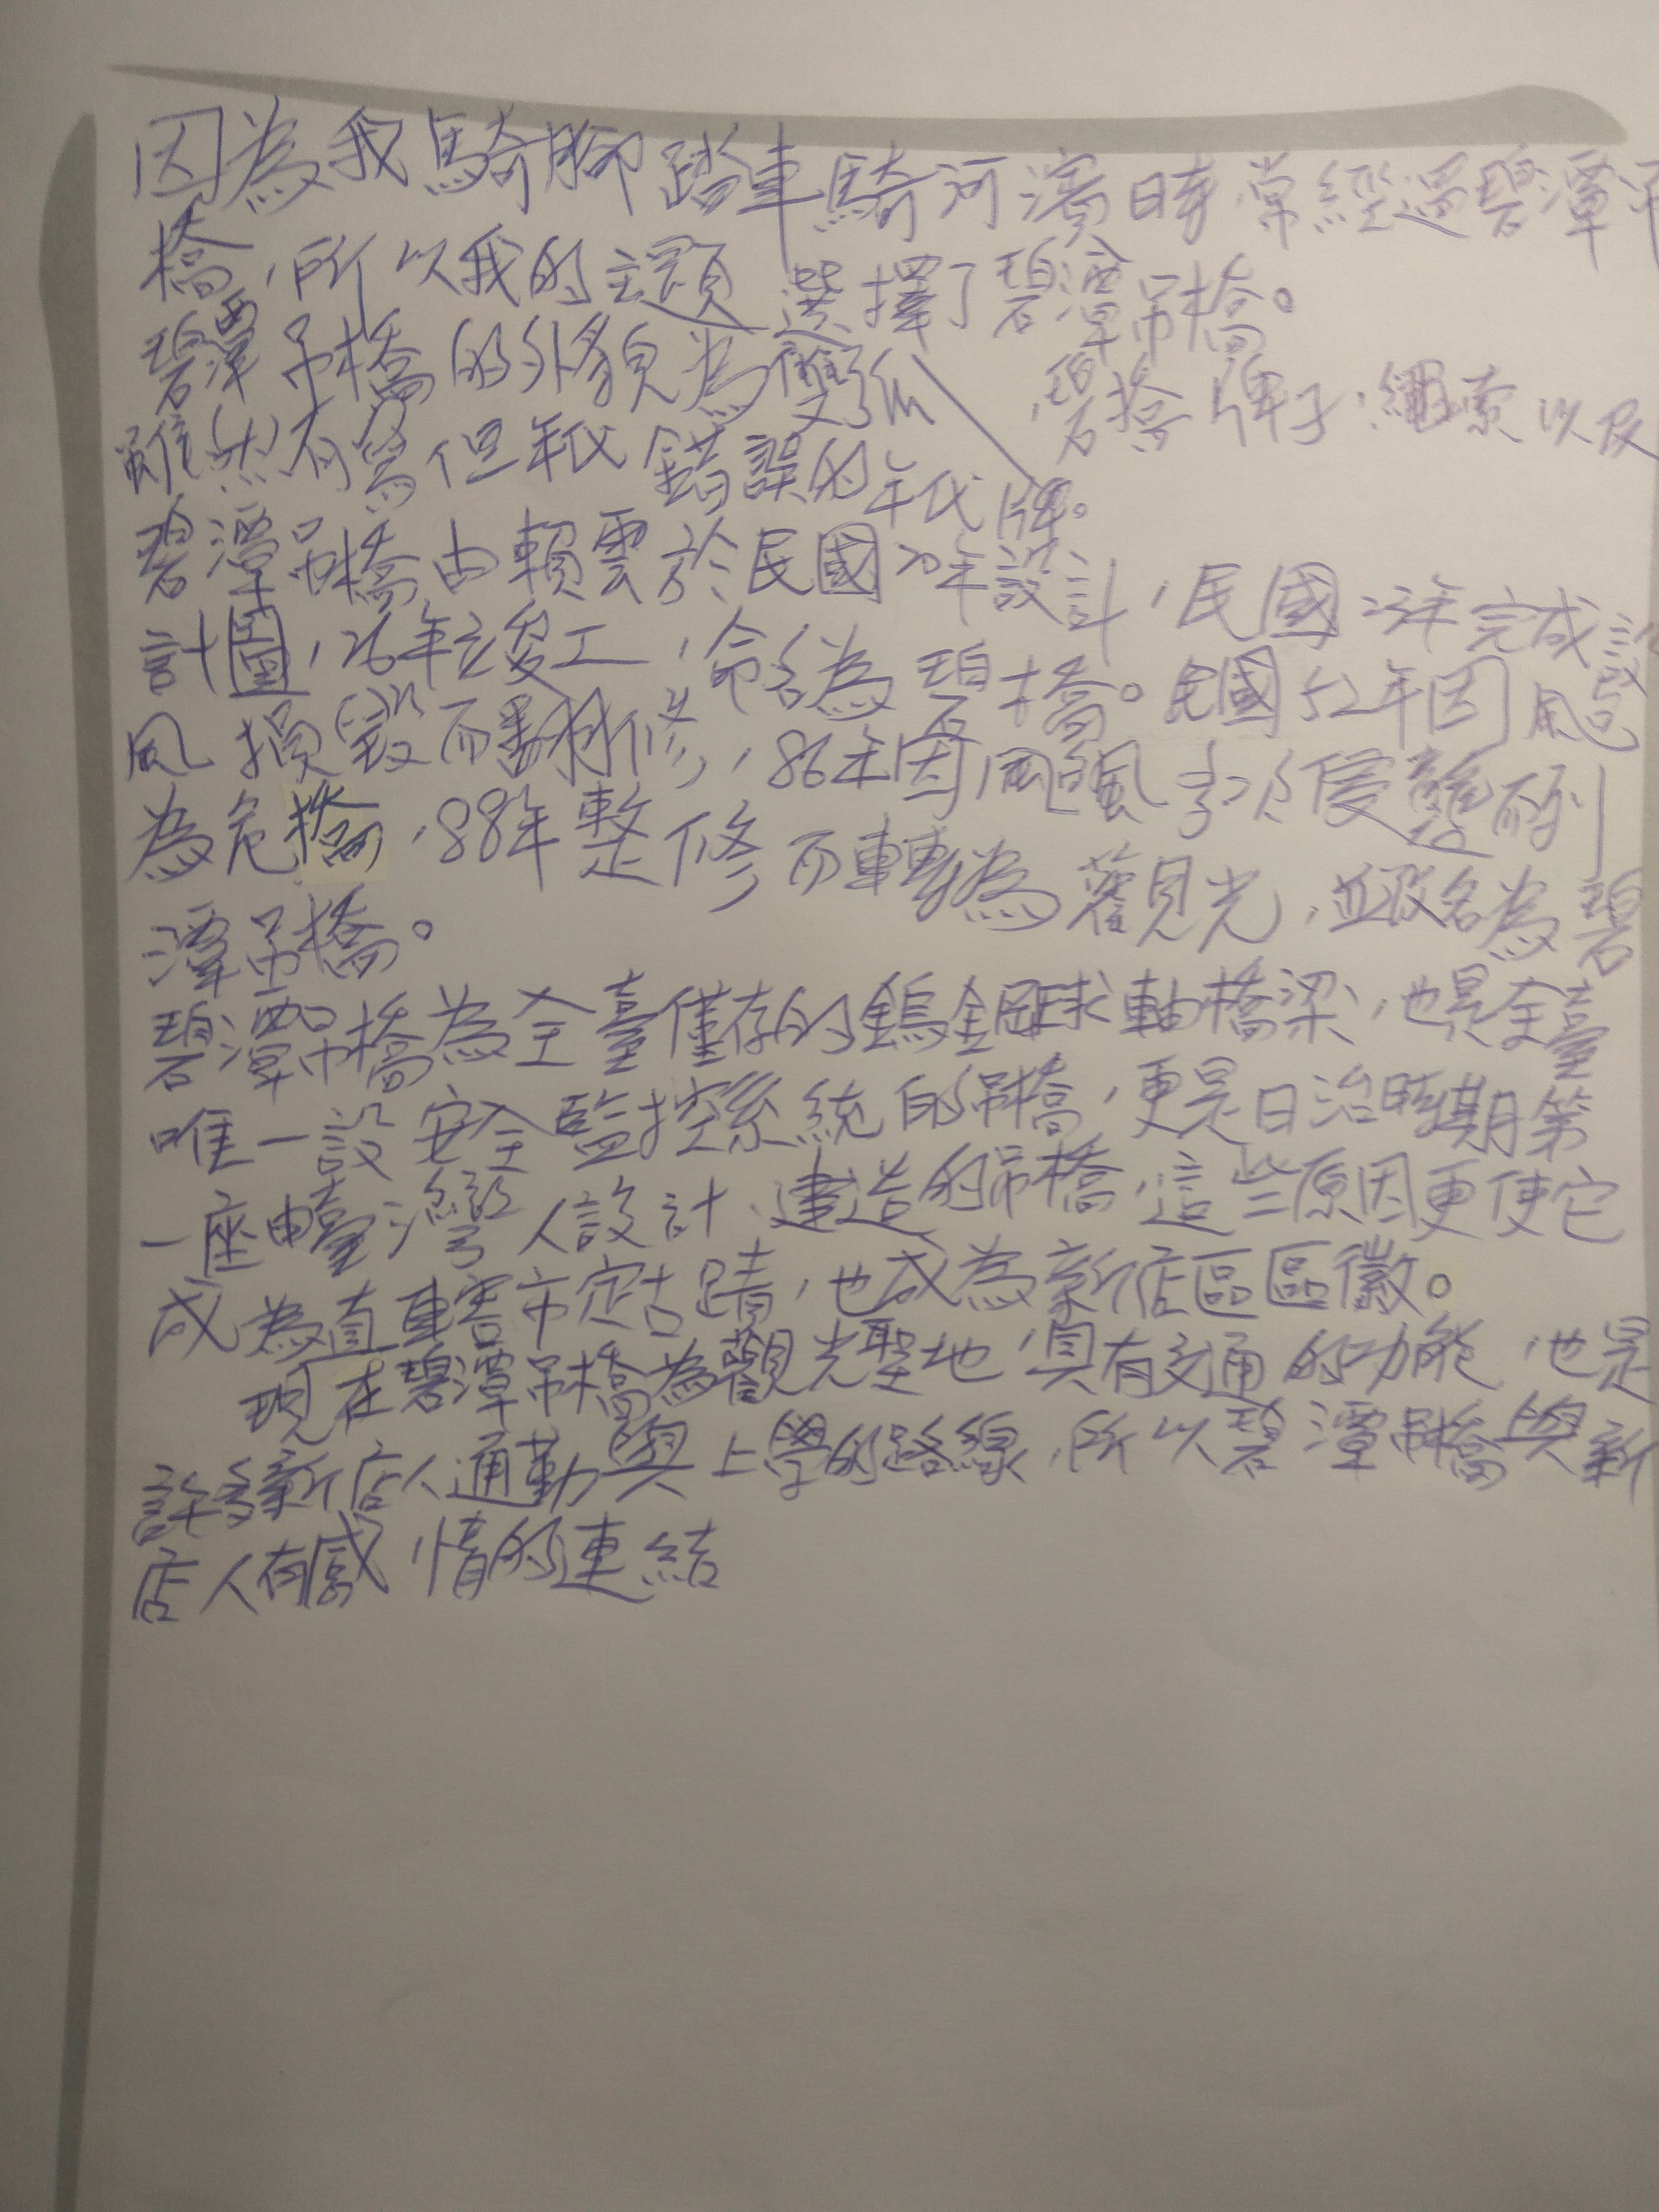 因為我騎腳踏車騎河濱時,常經過碧潭吊
橋,所以我的主題選擇了碧潭吊橋。
碧潭吊橋的外貌為雙弧、碧橋牌子、繩索以及
雖然有寫但年代錯誤的年代牌。
碧潭吊橋由賴雲於民國20年設計,民國25年完成設
計圖,26年竣工,命名為碧橋。民國52年因颱
風損毀而翻修,86年因颱風多次侵襲而列
為危橋,88年整修而轉為觀光,並改名為碧
潭吊橋。
碧潭吊橋為全臺僅存的鎢鋼球軸橋梁,也是全臺
唯一設安全監控系統的吊橋,更是日治時期第
一座由臺灣人設計、建造的吊橋,這些原因更使它
成為直轄市定古蹟,也成為新店區區徽。
現在碧潭吊橋為觀光聖地,具有交通的功能,也是
許多新店人通勤與上學的路線,所以碧潭吊橋與新
店人有感情的連結